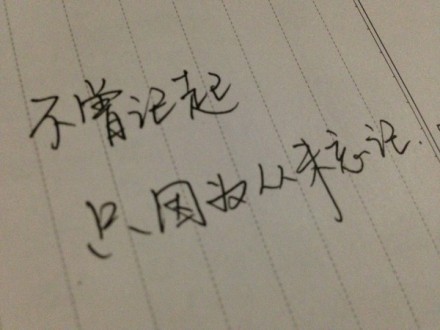 不曾记起
只因为从未忘记.